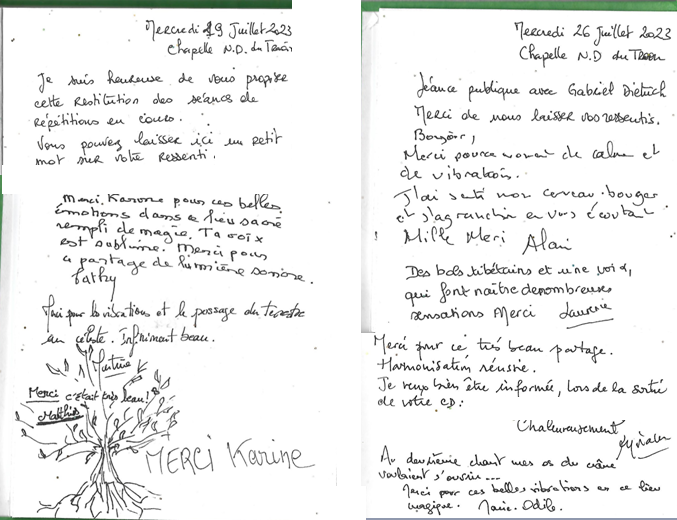 Mercredi 19 Juillet 2023
Chapelle N.D. du
Je suis heureuse de vous proposer
cette restitution des séances de
répétitions en cours.
Vous pouvez laisser ici un petit
mot sur votre ressenti.
Merci Karine pour ces belles
émotions dans ce lieu sacré
rempli de magie. Ta voix
est sublime. Merci pour
ce partage de lumière sonore.
Cathy
Merci pour les vibrations et le passage du terrestre
au céleste. Infiniment beau.
Merci c'était très beau!
Mathis
MERCI Karine
Mercredi 26 Juillet 2023
Chapelle N.D du
Séance publique avec Gabriel
Merci de nous laisser vos ressentis.
Bonsoir,
Merci pour ce moment de calme et
de vibration.
J'ai senti mon cerveau bouger
et s'agrandir en vous écoutant
Mille Merci Alain
Des bols tibétains et une voix,
qui font naître de nombreuses
sensations Merci
Merci pour ce très beau partage.
Harmonisation réussie.
Je veux bien être informée, lors de la sortie
de votre CD.
Chaleureusement
Au deuxième chant mes os du crâne
voulaient s'ouvrir...
Merci pour ces belles vibrations en ce lieu
magique. Marie-Odile.